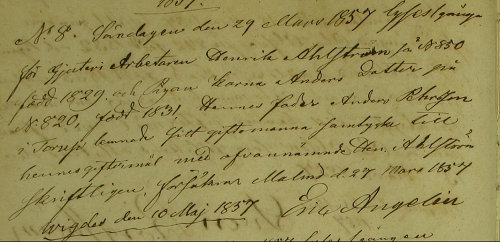 1857.
No 8. Söndagen den 29 Mars 1857 lystes 1sta gången
för Gjuteri Arbetaren Henrik Ahlström på No 850
född 1829. och Pigan Karna Anders Dotter på
No 820, född 1831, Hennes fader Anders
i Torup, lemnade sitt giftomanna samtycke till
hennes giftermål med ofvannämnde Hen. Ahlström
skriftligen, försäkrar Malmö d. 27 Mars 1857
wigdes den 10 Maj 1857 Eric Angelin